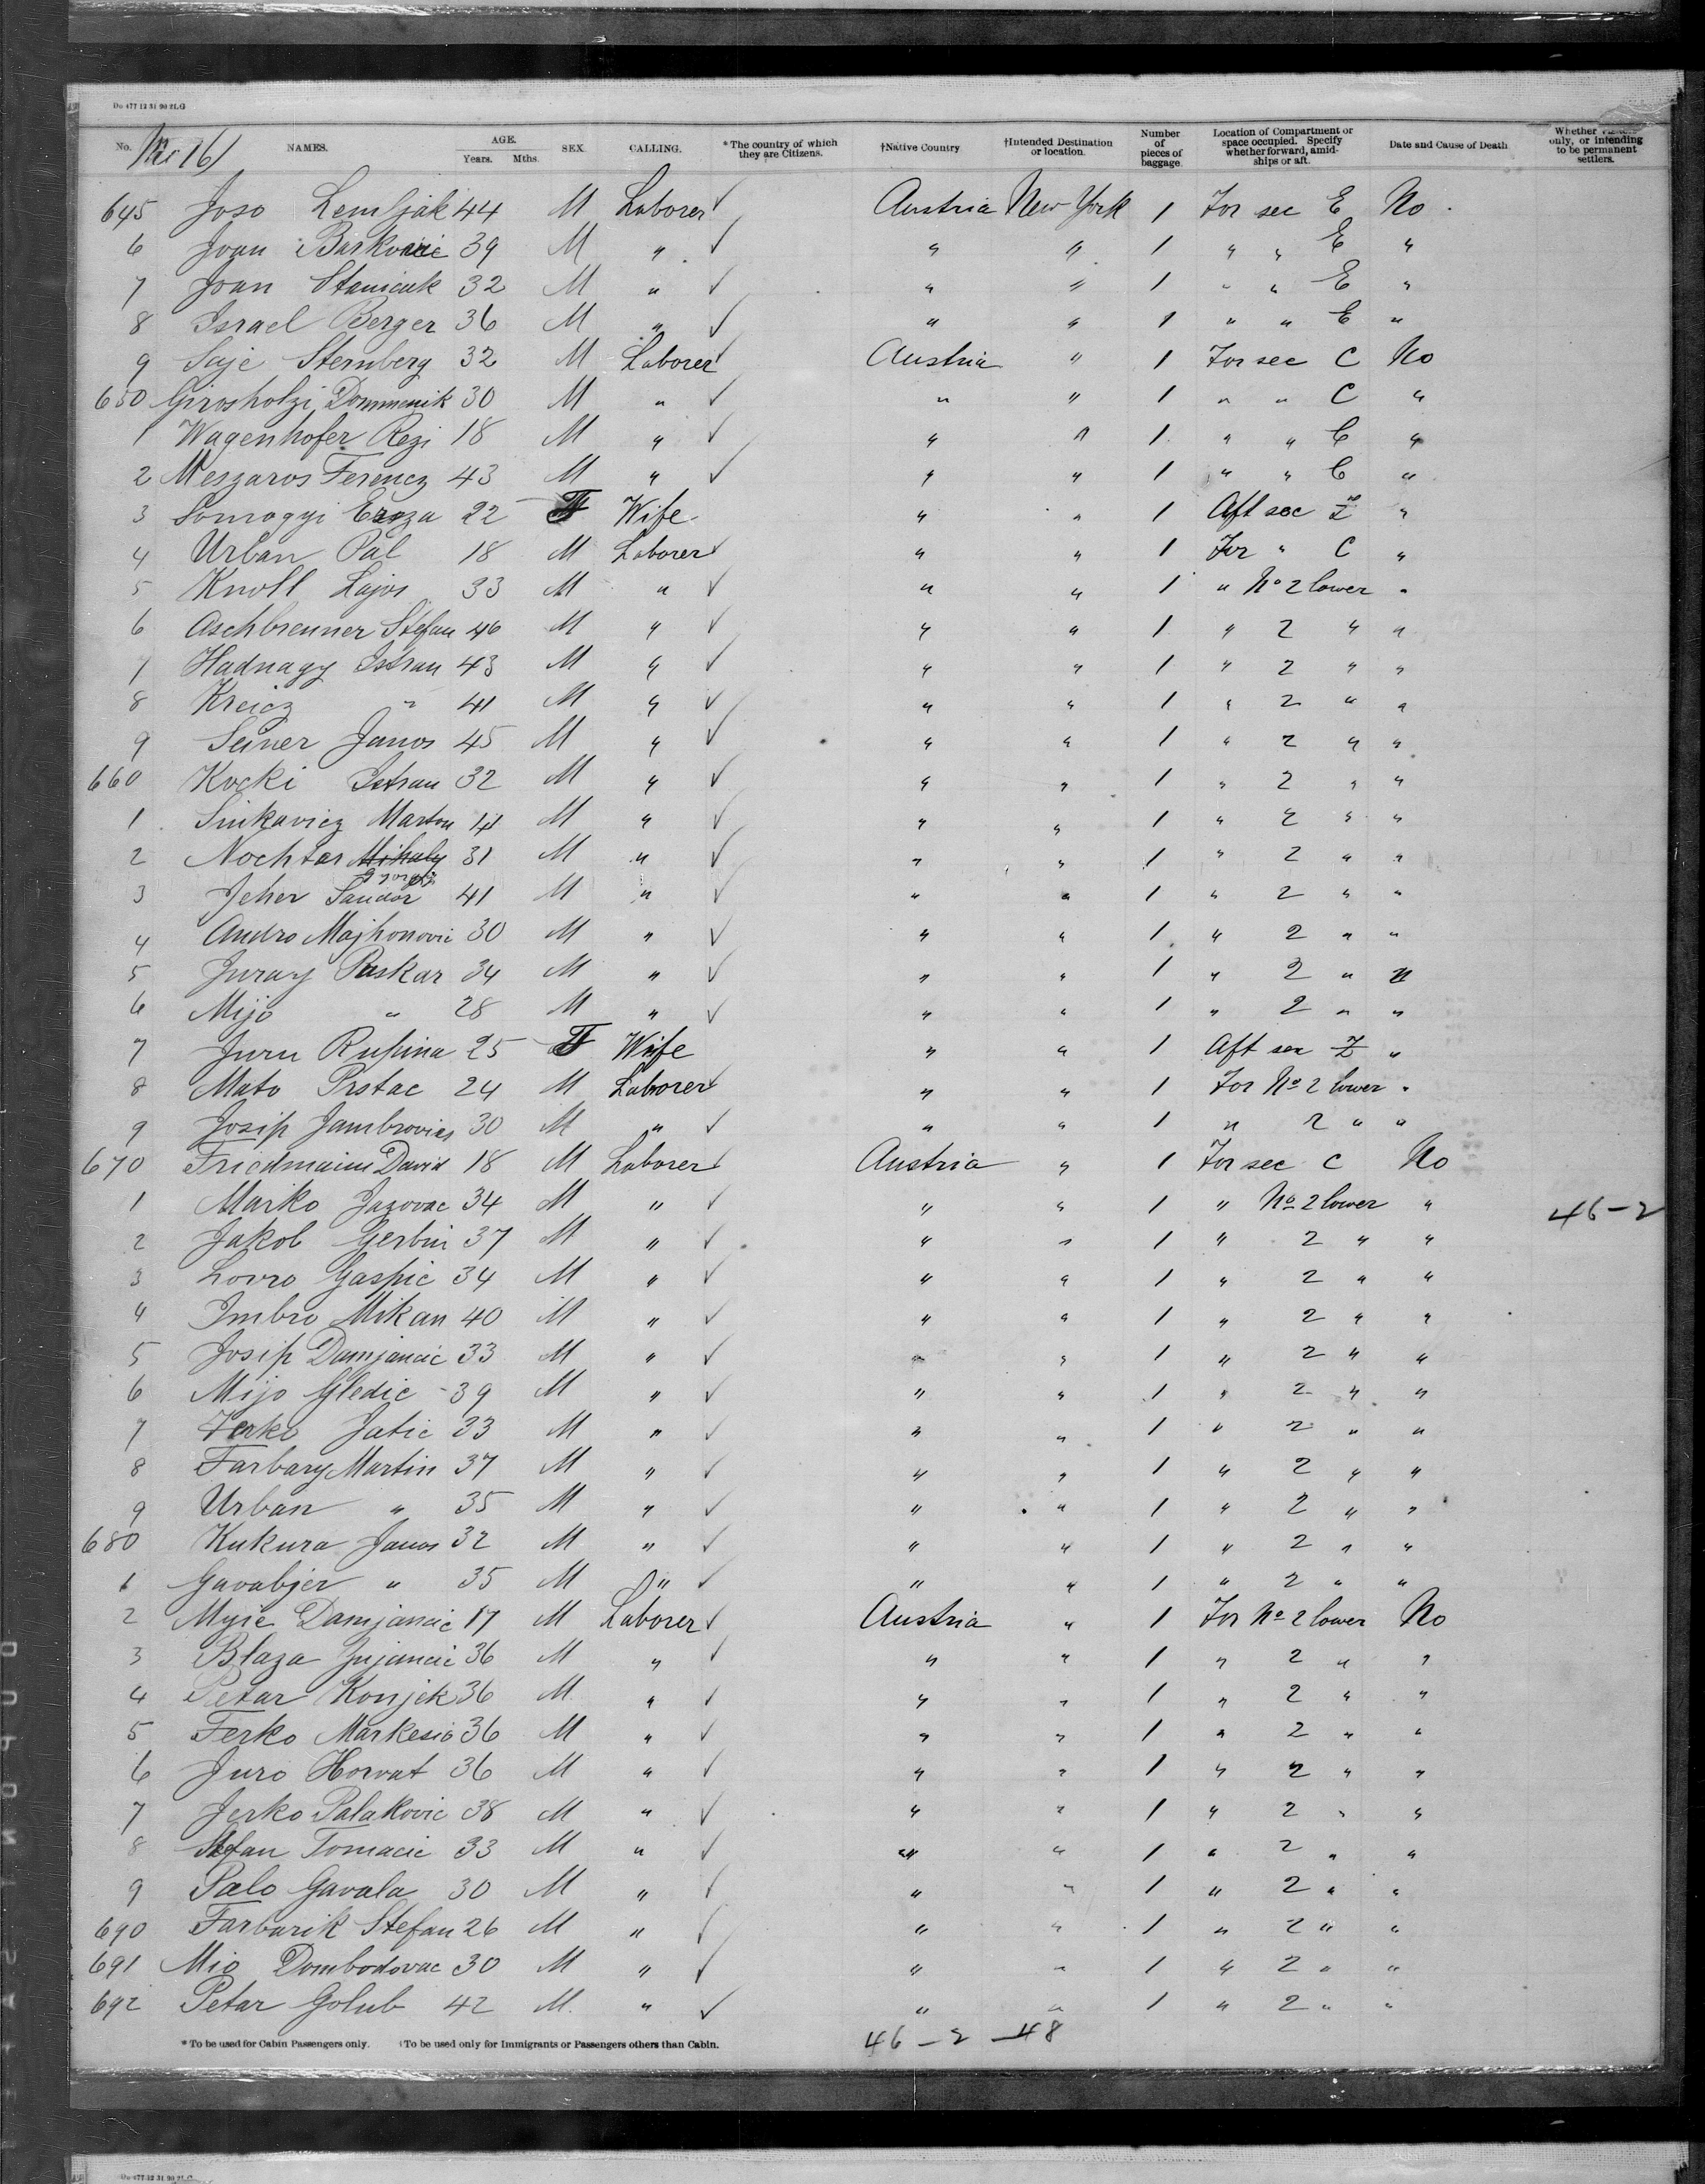 Do 477 12 31 90 2LG
No. NAMES. AGE. Years. Mths. SEX CALLING. *The country of which they are Citizens. †Native Country †Intended Destination or location. Number of pieces of baggage. Location of Compartment or space occupied. Specify whether forward, amidships or aft. Date and Cause of Death Whether only, or intending to be permanent settlers.
645 Joso Lemljak 44 M Laborer ✓ Austria New York 1 For sec E No
6 Joan 39 M " ✓ " " 1 " " E "
7 Joan 32 M " ✓ " " 1 " " E "
8 Israel Berger 36 M " ✓ " " 1 " " E "
9 Saje Sternberg 32 M Laborer ✓ Austria " 1 For sec C No
650 Girosholzi Dommenik 30 M " ✓ " " 1 " " C "
1 Wagenhofer Rezi 18 M " ✓ " " 1 " " C "
2 Meszaros Ferencz 43 M " ✓ " " 1 " " C "
3 Somogyi 22 F Wife " " 1 Aft sec Z "
4 Urban Pal 18 M Laborer ✓ " " 1 For " C "
5 Knoll Lajos 33 M " ✓ " " 1 " No 2 lower "
6 Aschbrenner Stefan 46 M " ✓ " " 1 " 2 " "
7 Hadnagy Istvan 43 M " ✓ " " 1 " 2 " "
8 Kreicz " 41 M " ✓ " " 1 " 2 " "
9 Seiner Janos 45 M " ✓ " " 1 " 2 " "
660 Kocki Istvan 32 M " ✓ " " 1 " 2 " "
1 Sinkavicz Marton 41 M " ✓ " " 1 " 2 " "
2 Nochtar Mihaly 31 M " ✓ " " 1 " 2 " "
3 Jeher Sandor 41 M " ✓ " " 1 " 2 " "
4 Andro Majhonovic 30 M " ✓ " " 1 " 2 " "
5 Juray Puskar 34 M " ✓ " " 1 " 2 " "
6 Mijo " 28 M " ✓ " " 1 " 2 " "
7 Juru Rupina 25 F Wife " " 1 Aft sec Z "
8 Mato Prstac 24 M Laborer ✓ " " 1 For No 2 lower "
9 Josip Jambrovics 30 M " ✓ " " 1 " 2 " "
670 Friedmann David 18 M Laborer ✓ Austria " 1 For sec C No
1 Marko Jazovac 34 M " ✓ " " 1 " No 2 lower " 46-2
2 Jakob Gerbin 37 M " ✓ " " 1 " 2 " "
3 Lovro Gaspic 34 M " ✓ " " 1 " 2 " "
4 Imbro Mikan 40 M " ✓ " " 1 " 2 " "
5 Josip Damjancic 33 M " ✓ " " 1 " 2 " "
6 Mijo Gledic 39 M " ✓ " " 1 " 2 " "
7 Ferko Jatic 33 M " ✓ " " 1 " 2 " "
8 Farbary Martin 37 M " ✓ " " 1 " 2 " "
9 Urban " 35 M " ✓ " " 1 " 2 " "
680 Kukura Janos 32 M " ✓ " " 1 " 2 " "
1 Gavabjer " 35 M " ✓ " " 1 " 2 " "
2 Myic Damjancic 17 M Laborer ✓ Austria " 1 For No 2 lower No
3 Blaza 36 M " ✓ " " 1 " 2 " "
4 Petar Konjek 36 M " ✓ " " 1 " 2 " "
5 Ferko Markesic 36 M " ✓ " " 1 " 2 " "
6 Juro Horvat 36 M " ✓ " " 1 " 2 " "
7 Jerko Palakovic 38 M " ✓ " " 1 " 2 " "
8 Stefan Tomacic 33 M " ✓ " " 1 " 2 " "
9 Palo Gavala 30 M " ✓ " " 1 " 2 " "
690 Farbarik Stefan 26 M " ✓ " " 1 " 2 " "
691 Mio Dombodovac 30 M " ✓ " " 1 " 2 " "
692 Petar Golub 42 M " ✓ " " 1 " 2 " "
*To be used for Cabin Passengers only. †To be used only for Immigrants or Passengers others than Cabin. 46-2-48